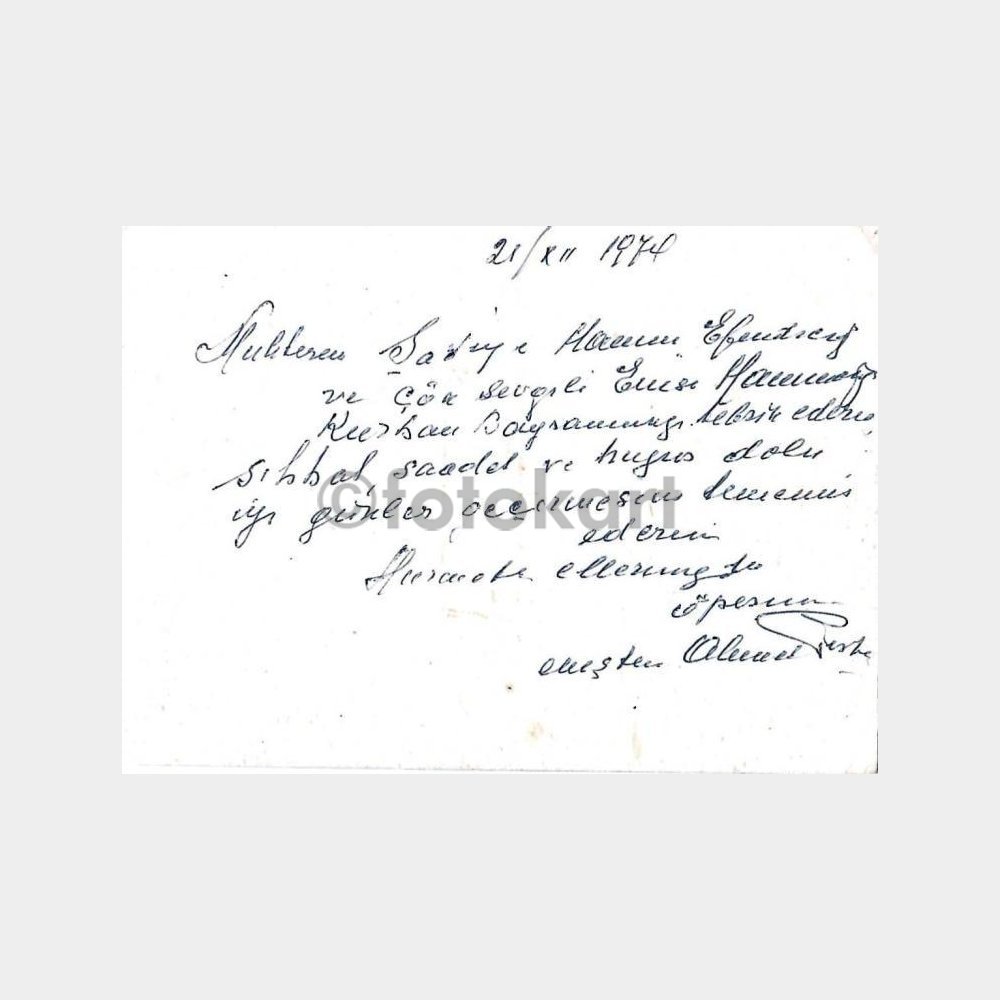 21/XII 1974
Muhterem Şadiye Hanım Efendiciğ
ve Çok Sevgili Emise Hanım
Kurban Bayramınızı tebrik ederim,
Sıhhat, saadet ve huzur dolu
iyi günler geçirmesini temenni
ederim
Hürmetle ellerinizden
öperim
©fotokart